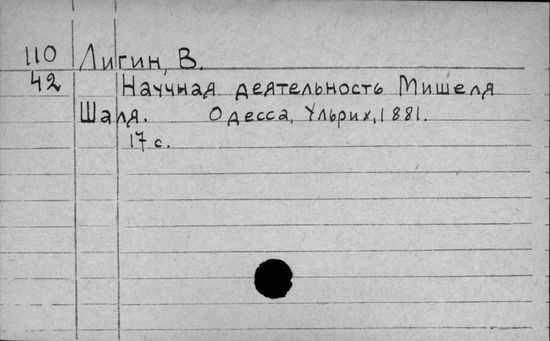 110 Лигин, В.
42 Научная деятельность Мишеля
Шаля. Одесса, Ульрих, 1881.
17 с.